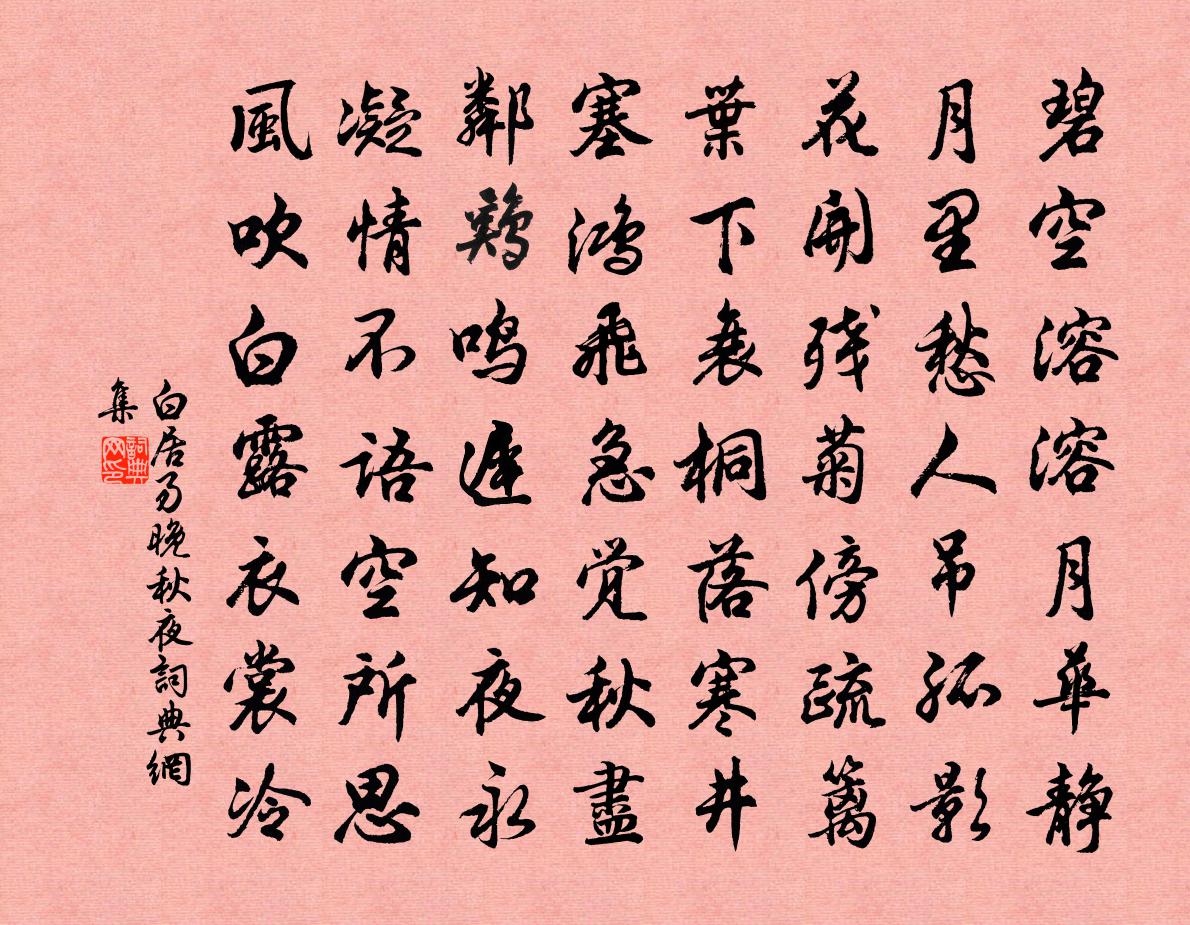 碧空溶溶月華静
月里愁人吊孤影
花開残菊傍疏篱
葉下衰桐落寒井
塞鴻飛急覚秋盡
鄰鷄鳴遲知夜永
凝情不語空所思
風吹白露衣裳冷
白居易晚秋夜詞典網
集
詞典
网印